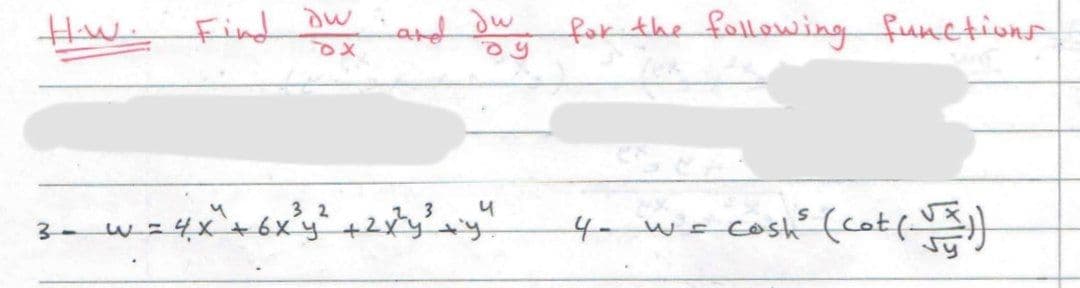 H.W. Find ∂w/∂x and ∂w/∂y for the following functions
3- w = 4x⁴ + 6x³y² + 2x²y³ + y⁴ 4- w = cosh⁵ (cot(√x/√y))